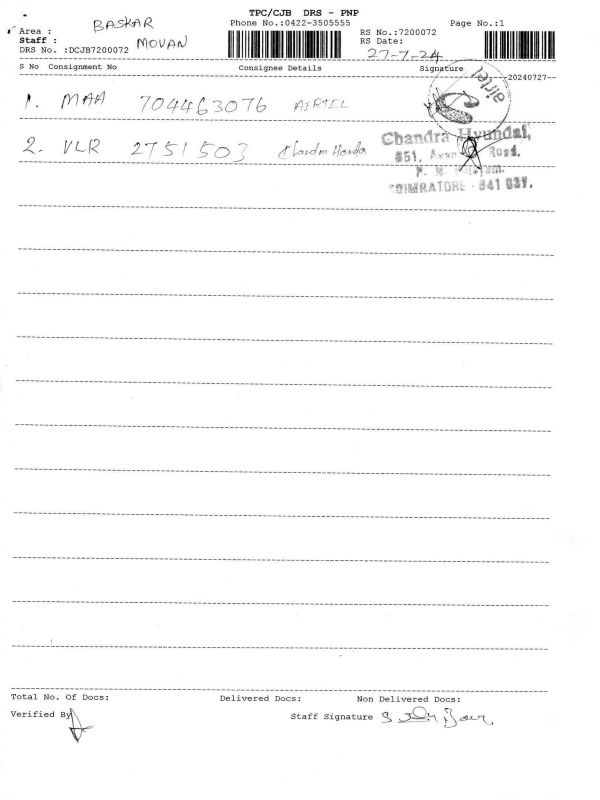 TPC/CJB DRS - PNP
Phone No.:0422-3505555
Page No.:1
Area : BASKAR
Staff : MOVAN
RS No.:7200072
RS Date: 27-7-24
DRS No. :DCJB7200072
S No Consignment No Consignee Details Signature
20240727
1. MAA 704463076 AIRTEL airtel
2. VLR 2751503 Chandra Honda
Chandra Hyundai,
651, Road.
COIMBATORE - 641 037.
Total No. Of Docs: Delivered Docs: Non Delivered Docs:
Verified By Staff Signature